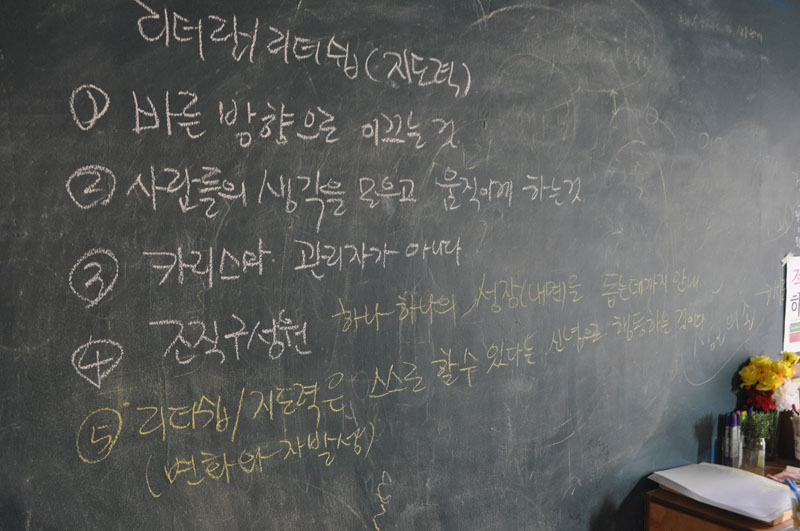 리더란/리더쉽(지도력)
① 바른 방향으로 이끄는것
② 사람들의 생각을 모으고 움직이게 하는것
③ 카리스마 관리자가 아니다
④ 조직구성원 하나하나의 성장(내면)을 돕는데까지 안내
⑤ 리더쉽/지도력은 스스로 할 수 있다는 신념으로 행동하는 것이다
(변화와 자발성)